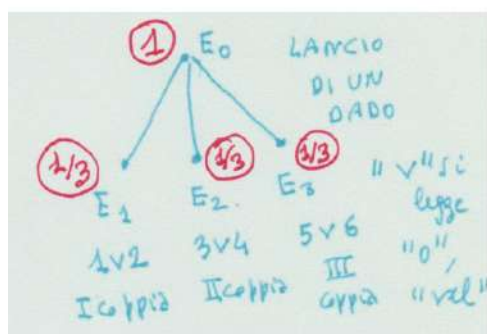 1 E0 LANCIO
DI UN
DADO
1/3 1/3 1/3
E1 E2. E3 "v" si
legge
1v2 3v4 5v6 "o",
I coppia II coppia III coppia "vel"